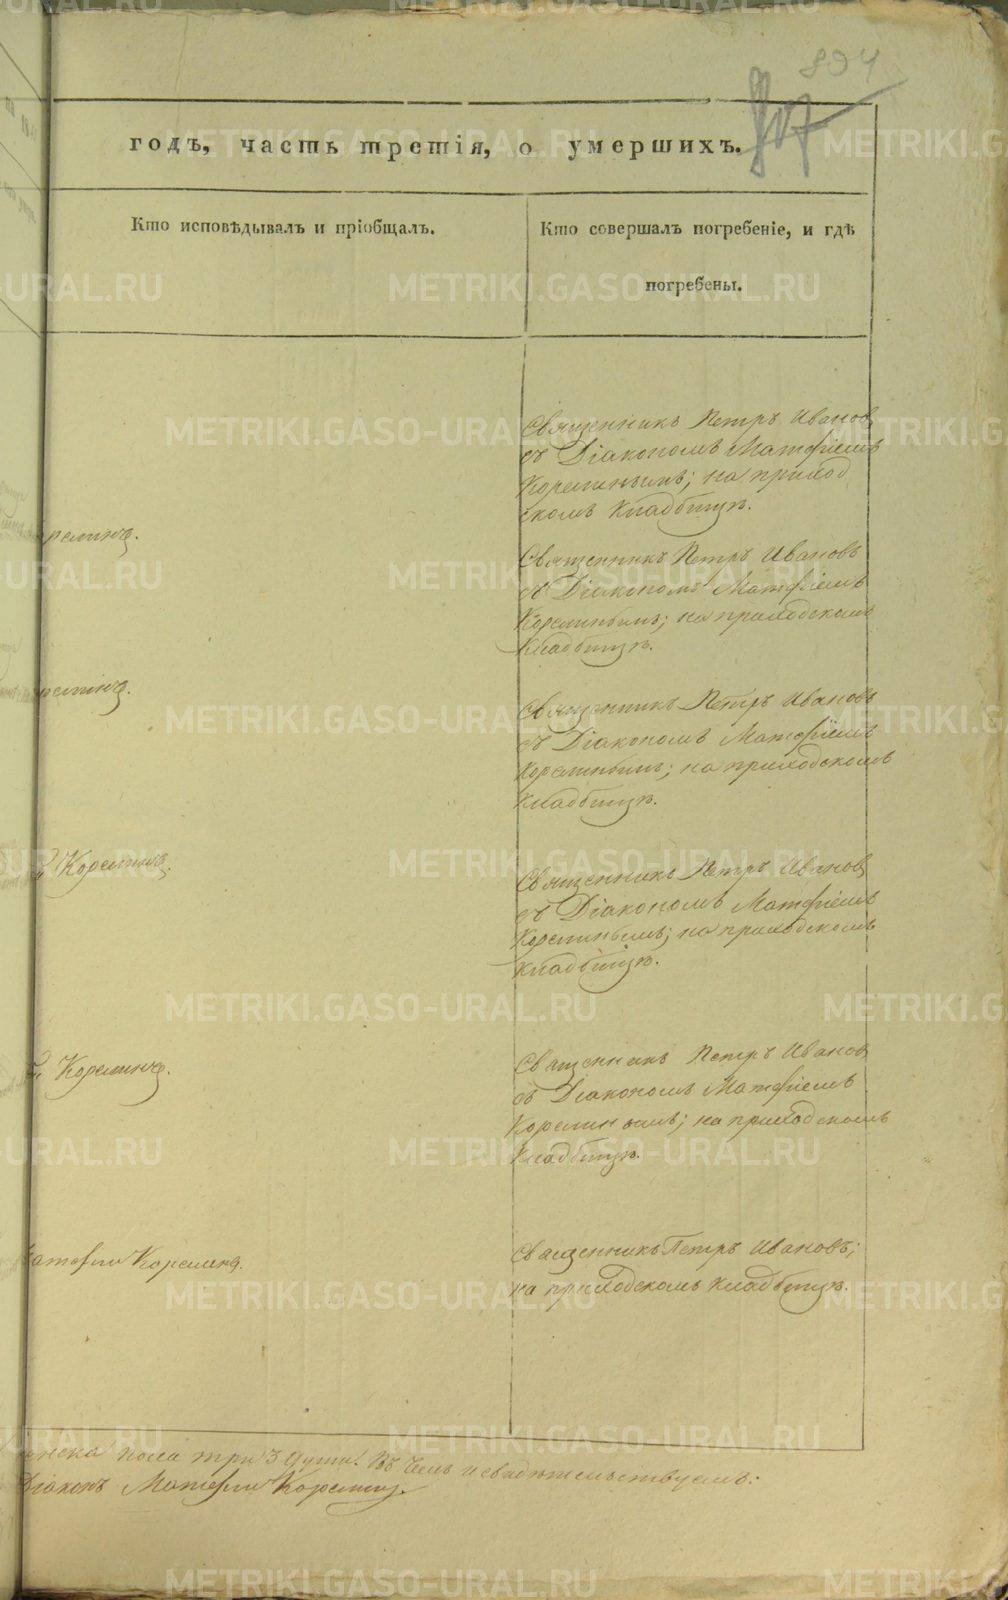 894
807
годъ, часть третія, о умершихъ.
Кто исповѣдывалъ и пріобщалъ.
Кто совершалъ погребеніе, и гдѣ
погребены.
Священникъ Петръ Иванов
съ Діакономъ Матфіемъ
Корелинымъ; на приход
скомъ Кладбищѣ.
релинъ.
Священникъ Петръ Ивановъ
съ Діакономъ Матфіемъ
Корелинымъ; на приходскомъ
Кладбищѣ.
релинъ.
Священникъ Петръ Ивановъ
съ Діакономъ Матфіемъ
Корелинымъ; на приходскомъ
Кладбищѣ.
Корелинъ.
Священникъ Петръ Иванов
съ Діакономъ Матфіемъ
Корелинымъ; на приходскомъ
кладбищѣ.
Корелинъ.
Священникъ Петръ Иванов
съ Діакономъ Матфіемъ
Корелинымъ; на приходскомъ
Кладбищѣ.
атфій Корелинъ.
Священникъ Петръ Ивановъ;
на приходскомъ Кладбищѣ.
женска пола три 3 души. Въ чемъ и свидѣтельствуемъ:
Діаконъ Матфій Корелинъ.
METRIKI.GASO-URAL.RU